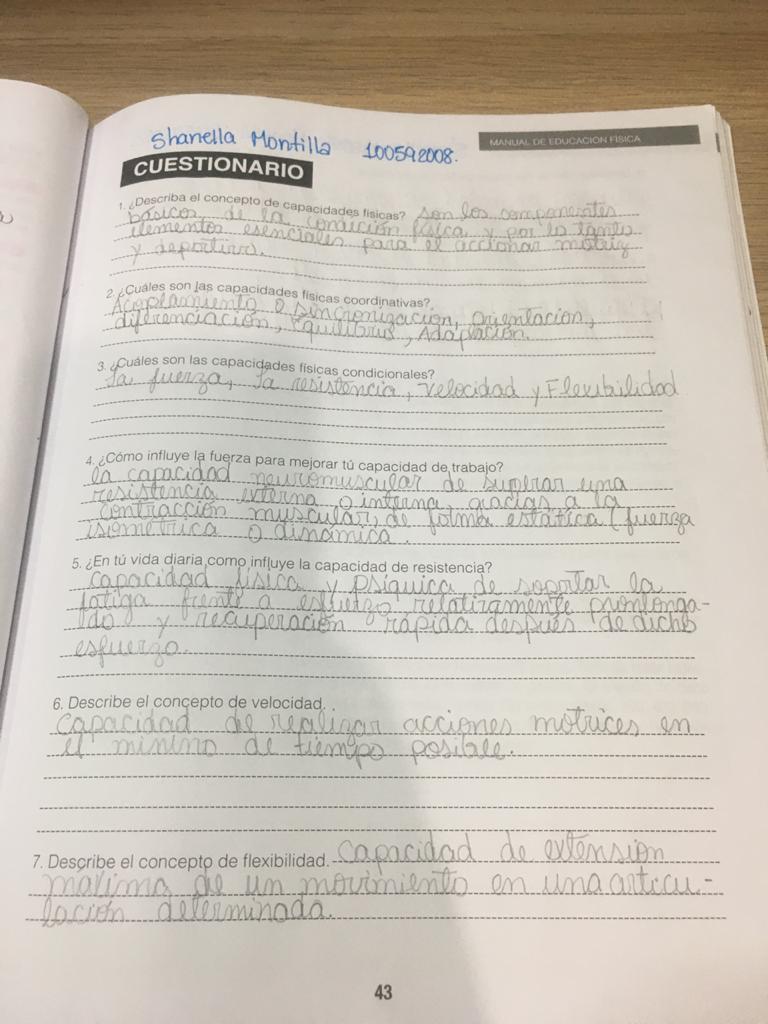 Shanella Montilla 100592008.
MANUAL DE EDUCACIÓN FÍSICA
CUESTIONARIO
1. ¿Describa el concepto de capacidades físicas? son los componentes
básicos de la condición física y por lo tanto
elementos esenciales para el accionar motriz
y deportivo.
2. ¿Cuáles son las capacidades físicas coordinativas?
Acoplamiento o sincronización, orientación,
diferenciación, Equilibrio, Adaptación.
3. ¿Cuáles son las capacidades físicas condicionales?
La fuerza, La resistencia, velocidad y Flexibilidad
4. ¿Cómo influye la fuerza para mejorar tú capacidad de trabajo?
la capacidad neuromuscular de superar una
resistencia externa o interna, gracias a la
contracción muscular, de forma estática (fuerza
isometrica o dinámica.
5. ¿En tú vida diaria como influye la capacidad de resistencia?
capacidad física y psíquica de soportar la
fatiga frente a esfuerzo relativamente prolonga-
do y recuperación rápida después de dicho
esfuerzo.
6. Describe el concepto de velocidad.
capacidad de realizar acciones motrices en
el minimo de tiempo posible.
7. Describe el concepto de flexibilidad. capacidad de extensión
máxima de un movimiento en una articu-
lación determinada.
43